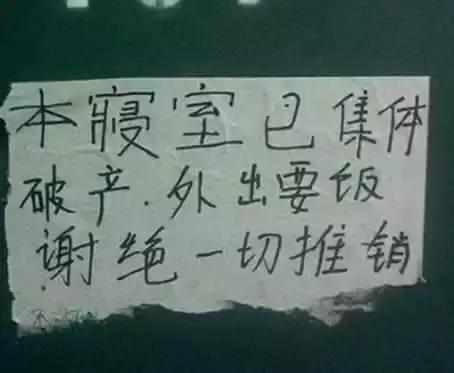 本寝室已集体
破产.外出要饭
谢绝一切推销